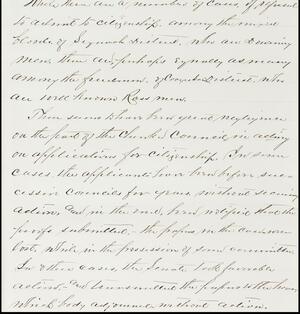 While there are a number of cases of refusal
to admit to citizenship, among the mixed
bloods of Sequoyah District, who are Downing
men, there are perhaps equally as many
among the freedmen, of District, who
are well known Ross men.
There seems to have been great negligence
on the part of the Cherokee Council, in acting
on applications for citizenship. In some
cases the applicants have been before suc-
cessive Councils for years, without securing
action, and in the end, been notified that the
proofs submitted,— the papers in the case were
lost, while in the possession of some committee.
In other cases, the Senate took favorable
action,— and transmitted the papers to the house,
which body adjourned without action.